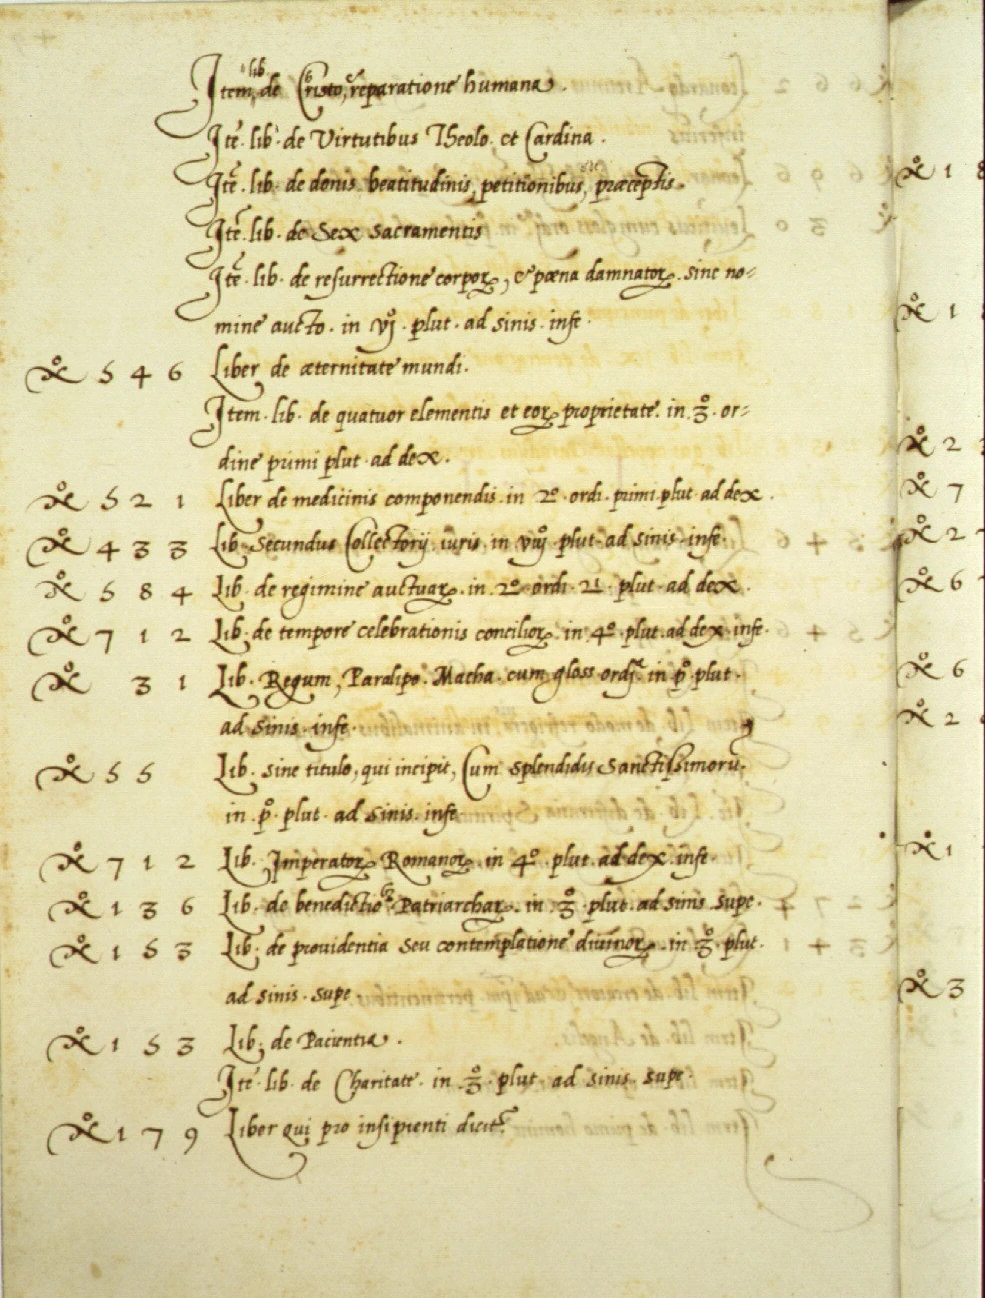 Item, lib de Christo, et reparatione humana.
Itē. lib. de Virtutibus Theolo. et Cardina.
Itē. lib. de donis beatitudinis, petitionibus, præceptis.
Itē. lib. de Sex Sacramentis
Itē. lib. de resurrectione corpoꝝ, & pœna damnatoꝝ. sine no=
mine aucto. in vij. plut. ad sinis. infe.
№ 546 Liber de æternitate mundi.
Item. lib. de quatuor elementis et eoꝝ proprietate. in 3º. or=
dine primi plut. ad dex.
№ 521 Liber de medicinis componendis. in 2º. ordi. primi plut ad dex.
№ 433 Lib. Secundus Collectorij iuris. in viij plut. ad sinis. infe.
№ 584 Lib. de regimine auctuaꝝ. in 2º. ordi. 21. plut. ad dex.
№ 712 Lib. de tempore celebrationis concilioꝝ. in 4º. plut. ad dex. infe.
№ 31 Lib. Regum, Paralipo. Macha. cum gloss ordį. in pº. plut.
ad sinis. infe.
№ 55 Lib. sine titulo, qui incipit, Cum splendidis Sanctissimorū.
in pº. plut. ad sinis. infe
№ 712 Lib. Imperatoꝝ Romanoꝝ. in 4º. plut. ad dex. infe.
№ 136 Lib. de benedictioᵇᵘˢ Patriarchaꝝ. in 3º. plut. ad sinis. supe.
№ 153 Lib. de providentia seu contemplatione divinoꝝ. in 3º. plut.
ad sinis. supe
№ 153 Lib. de Pacientia.
Itē. lib. de Charitate. in 3º. plut. ad sinis. supe.
№ 179 Liber qui pro insipienti dicit?
№ 1
№ 1
№ 2
№ 7
№ 2
№ 6
№ 6
№ 2
№ 1
№ 3